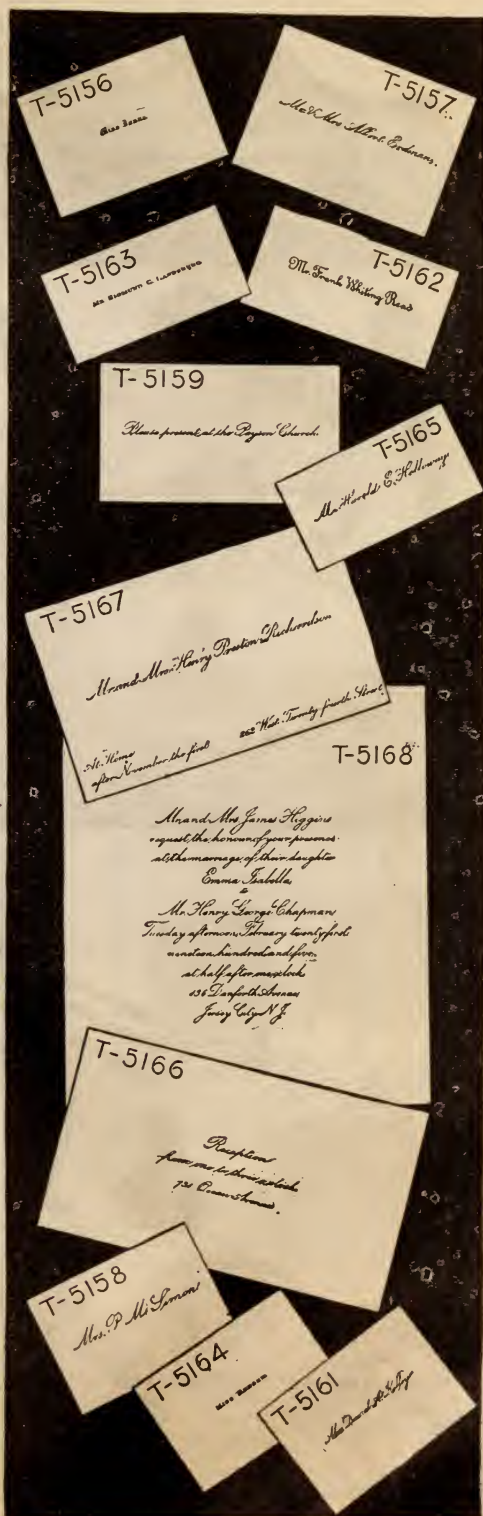 T-5156
Miss
T-5157
Mr & Mrs Albert Erdmans.
T-5163
Mr C.
T-5162
Mr. Frank Whiting Read
T-5159
Please present at the Payson Church.
T-5165
Mr. Harold E. Holloway
T-5167
Mr and Mrs Henry Preston Richardson
At Home
after November the first
262 West Twenty fourth Street
T-5168
Mr and Mrs James Higgins
request the honour of your presence
at the marriage of their daughter
Emma Isabella
to
Mr. Henry George Chapman
Tuesday afternoon, February twenty first
nineteen hundred and five,
at half after one o'clock
Danforth Avenue
Jersey City N J.
T-5166
Reception
from one to three o'clock
731 Ocean Avenue.
T-5158
Mrs. P. M. Simon
T-5164
Miss
T-5161